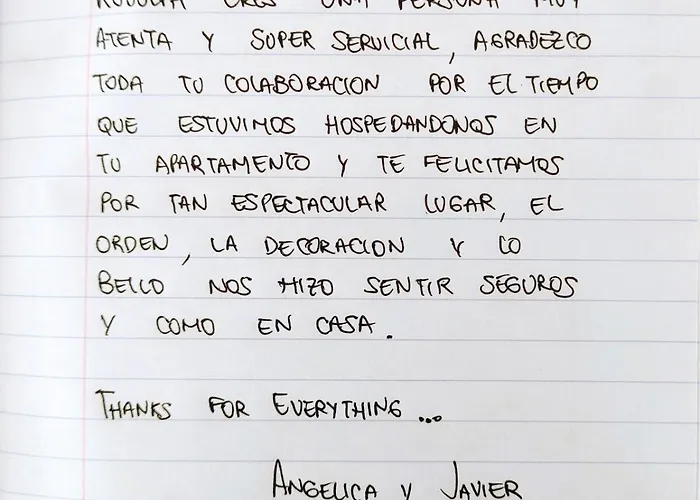 ERES UNA PERSONA MUY
ATENTA Y SUPER SERVICIAL, AGRADEZCO
TODA TU COLABORACION POR EL TIEMPO
QUE ESTUVIMOS HOSPEDANDONOS EN
TU APARTAMENTO Y TE FELICITAMOS
POR TAN ESPECTACULAR LUGAR, EL
ORDEN, LA DECORACION Y LO
BELLO NOS HIZO SENTIR SEGUROS
Y COMO EN CASA.
THANKS FOR EVERYTHING...
ANGELICA Y JAVIER